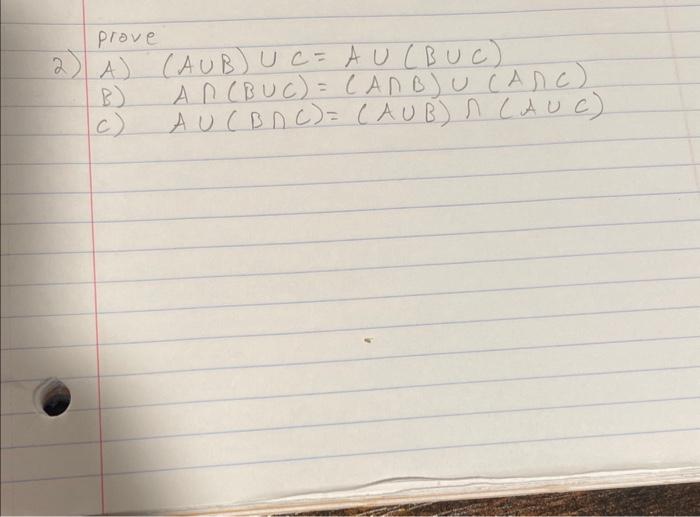 prove
2) A) (A∪B) ∪ C = A ∪ (B∪C)
B) A∩(B∪C) = (A∩B) ∪ (A∩C)
C) A∪(B∩C) = (A∪B) ∩ (A∪C)